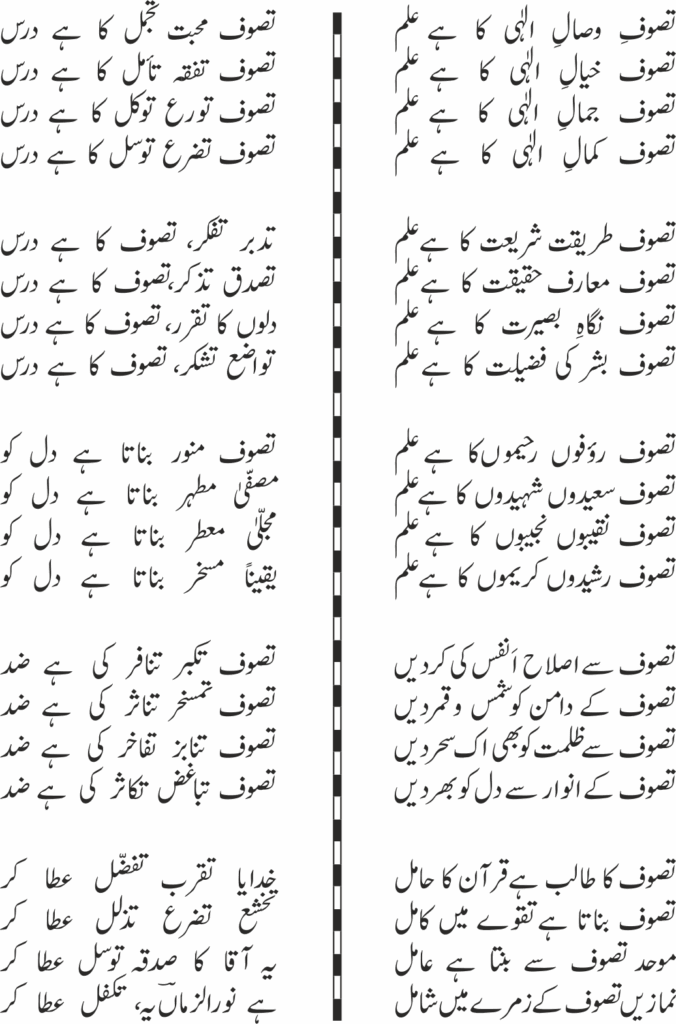 تصوفِ وصالِ الٰہی کا ہے علم
تصوف خیالِ الٰہی کا ہے علم
تصوف جمالِ الٰہی کا ہے علم
تصوف کمالِ الٰہی کا ہے علم
تصوف طریقت شریعت کا ہے علم
تصوف معارف حقیقت کا ہے علم
تصوف نگاہِ بصیرت کا ہے علم
تصوف بشر کی فضیلت کا ہے علم
تصوف رؤفوں رحیموں کا ہے علم
تصوف سعیدوں شہیدوں کا ہے علم
تصوف نقیبوں نجیبوں کا ہے علم
تصوف رشیدوں کریموں کا ہے علم
تصوف سے اصلاح اَنفس کی کردیں
تصوف کے دامن کو شمس و قمر دیں
تصوف سے ظلمت کو بھی اک سحر دیں
تصوف کے انوار سے دل کو بھر دیں
تصوف کا طالب ہے قرآن کا حامل
تصوف بناتا ہے تقوے میں کامل
موحد تصوف سے بنتا ہے عامل
نمازیں تصوف کے زمرے میں شامل
تصوف محبت تجمل کا ہے درس
تصوف تفقہ تأمل کا ہے درس
تصوف تورع توکل کا ہے درس
تصوف تضرع توسل کا ہے درس
تدبر تفکر، تصوف کا ہے درس
تصدق تذکر، تصوف کا ہے درس
دلوں کا تقرر، تصوف کا ہے درس
تواضع تشکر، تصوف کا ہے درس
تصوف منور بناتا ہے دل کو
مصفّیٰ مطہر بناتا ہے دل کو
مجلّیٰ معطر بناتا ہے دل کو
یقیناً مسخر بناتا ہے دل کو
تصوف تکبر تنافر کی ہے ضد
تصوف تمسخر تناثر کی ہے ضد
تصوف تنابز تفاخر کی ہے ضد
تصوف تباغض تکاثر کی ہے ضد
خدایا تقرب تفضّل عطا کر
تخشع تضرع تذلل عطا کر
یہ آقا کا صدقہ توسل عطا کر
ہے نورالزماںؔ یہ، تکفل عطا کر